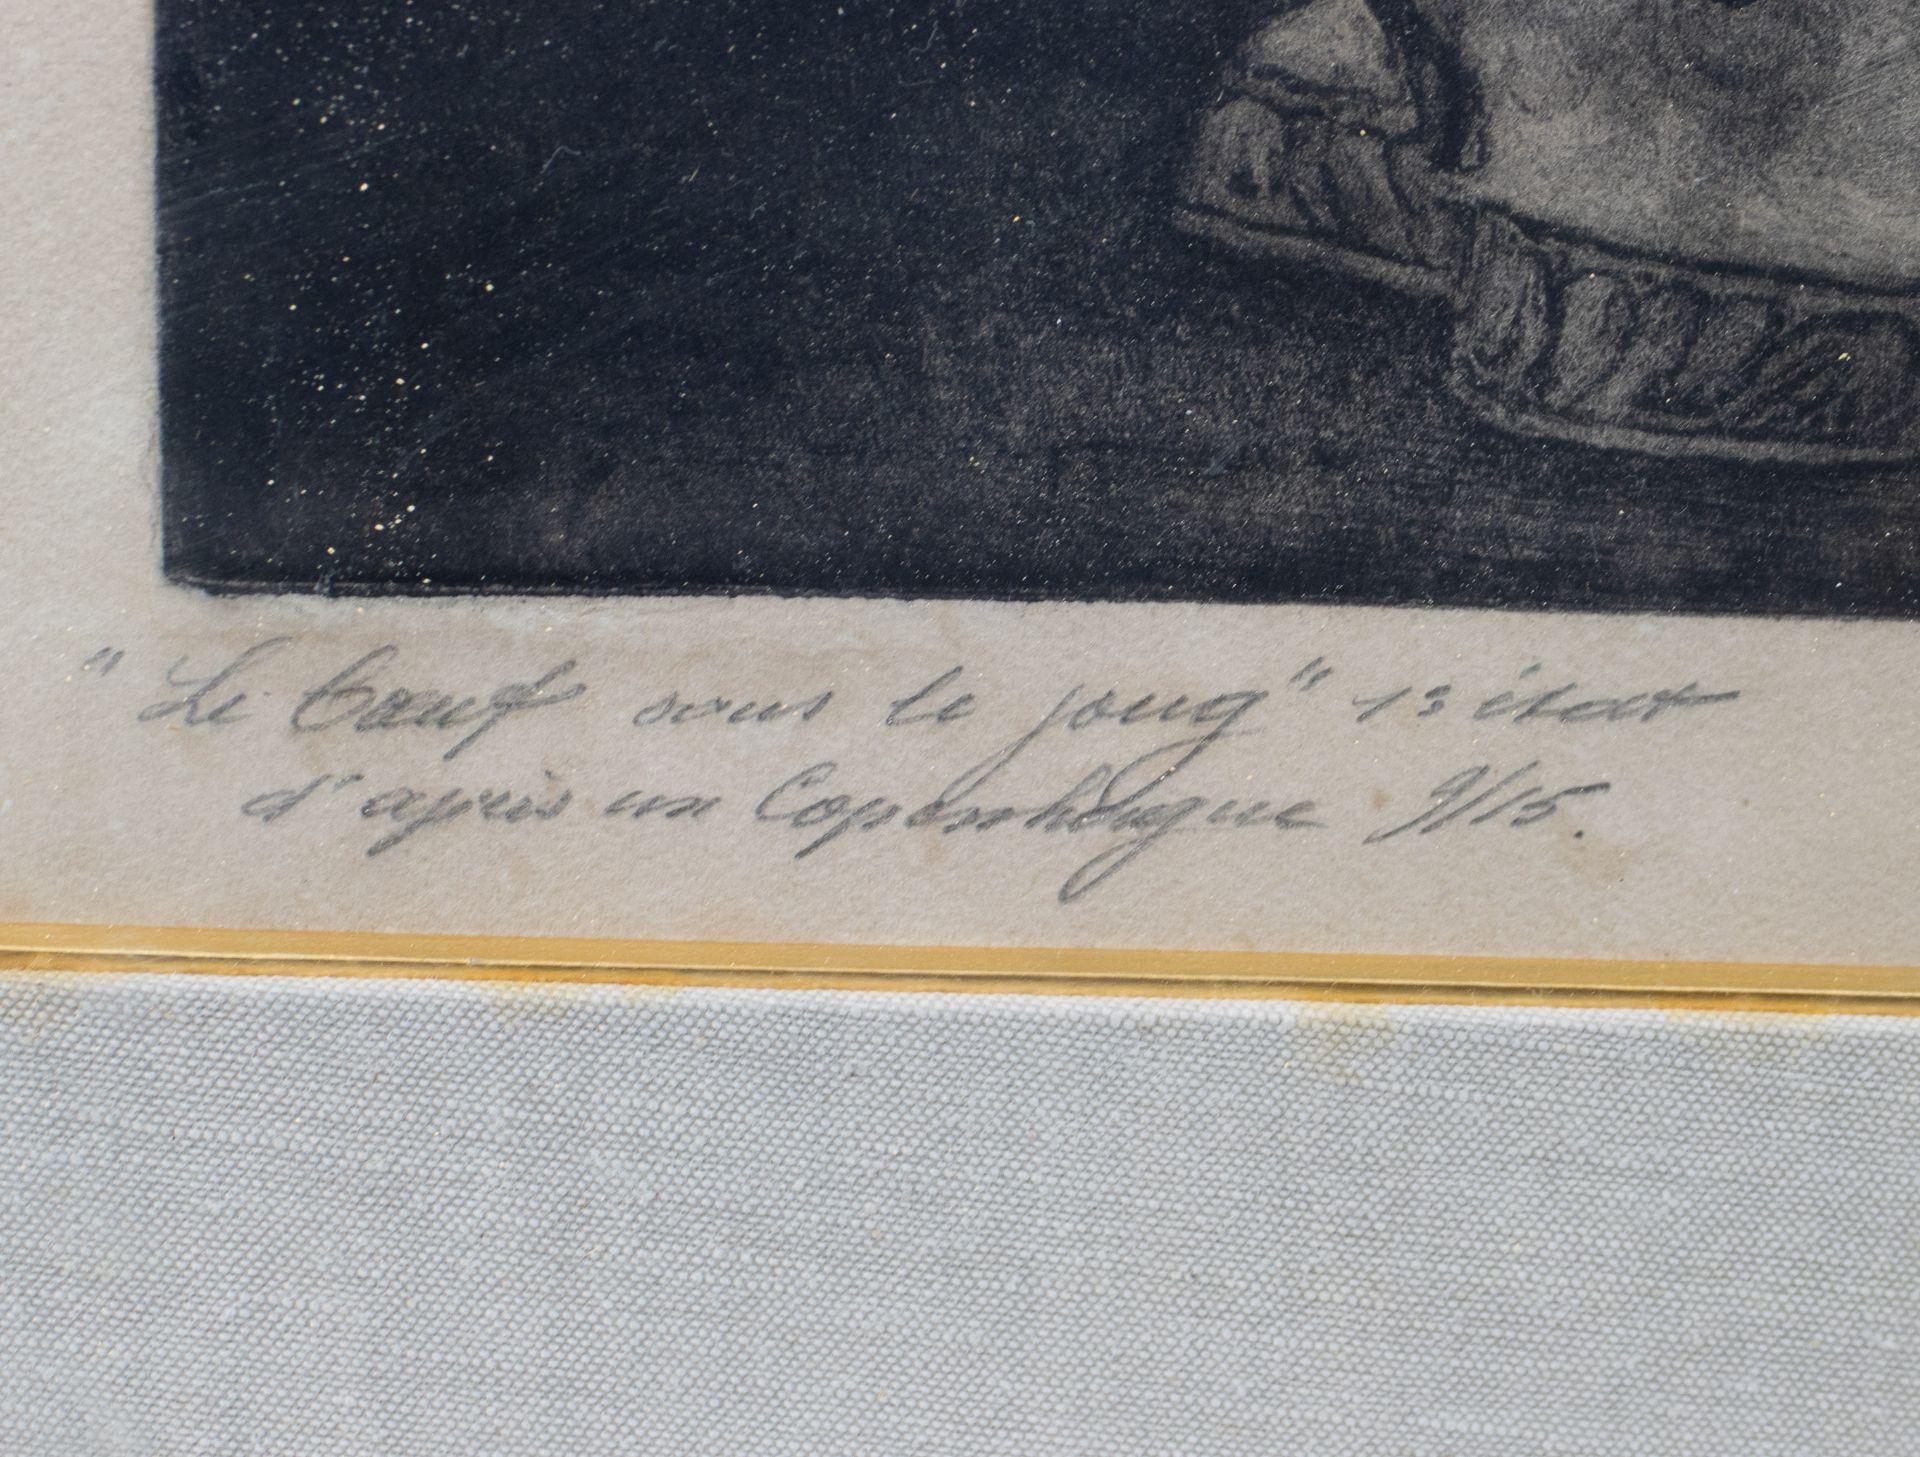 "Le bœuf sous le joug" 1s état
d'après un Copenhague 9/15.